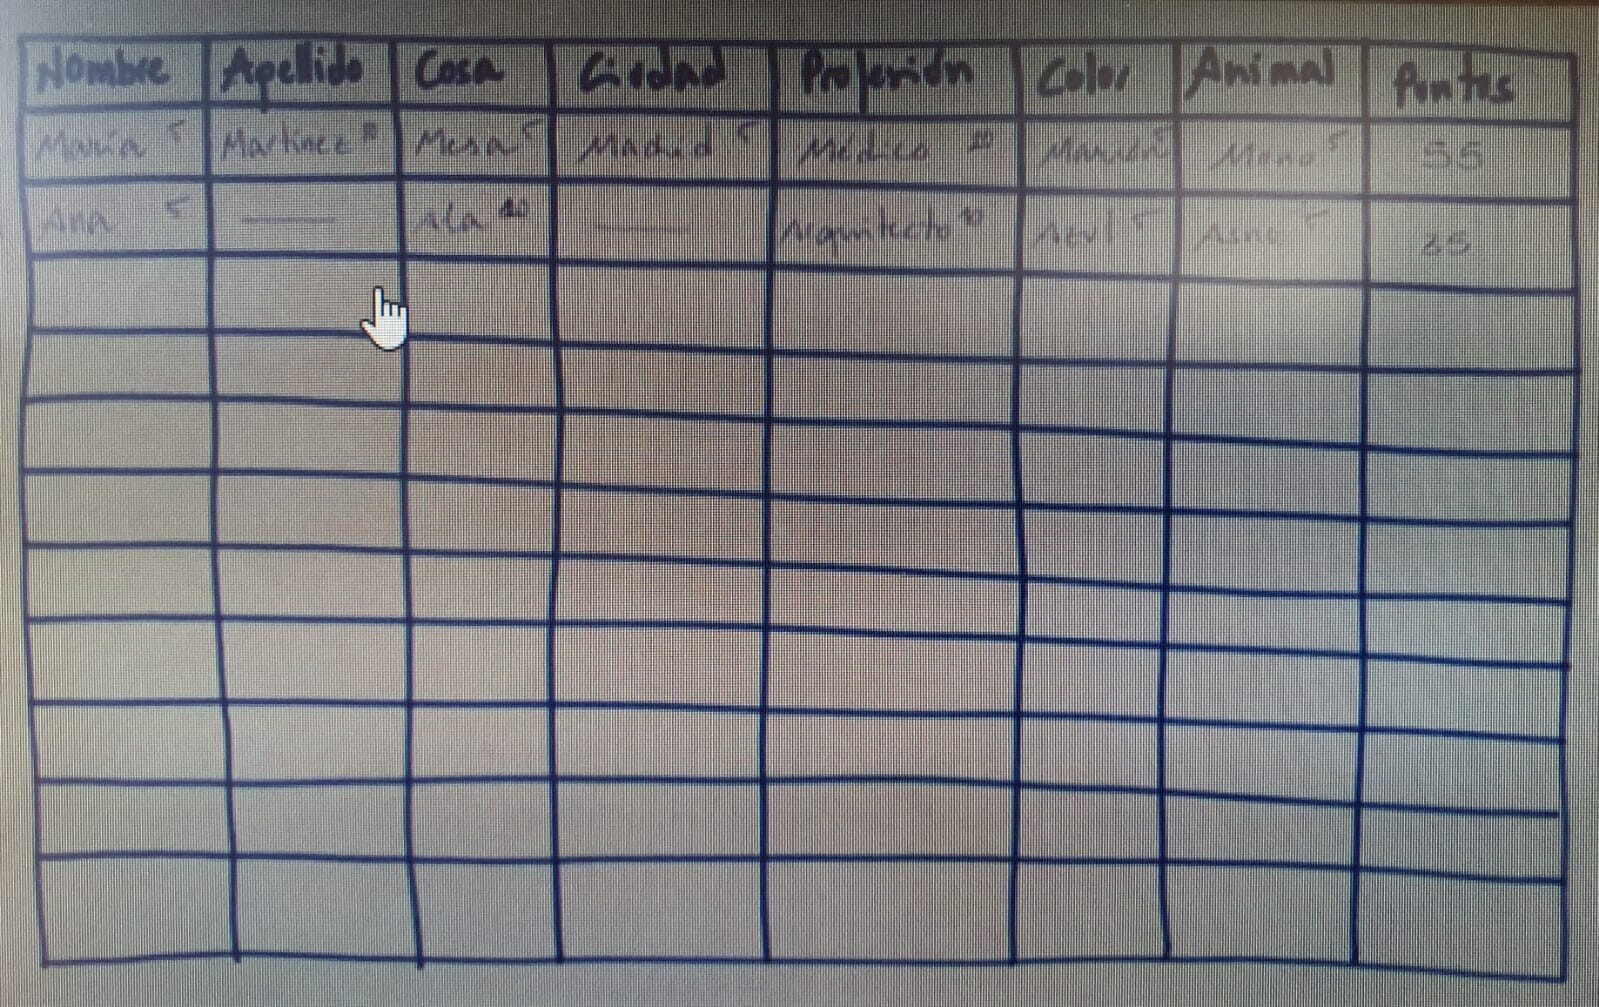 Nombre Apellido Cosa Ciudad Profesión Color Animal Puntos
María 5 Martínez 10 Mesa 5 Madrid 5 Médico 10 Marrón 5 Mono 5 55
Ana 5 Ala 10 Arquitecto 10 Azul 5 Asno 5